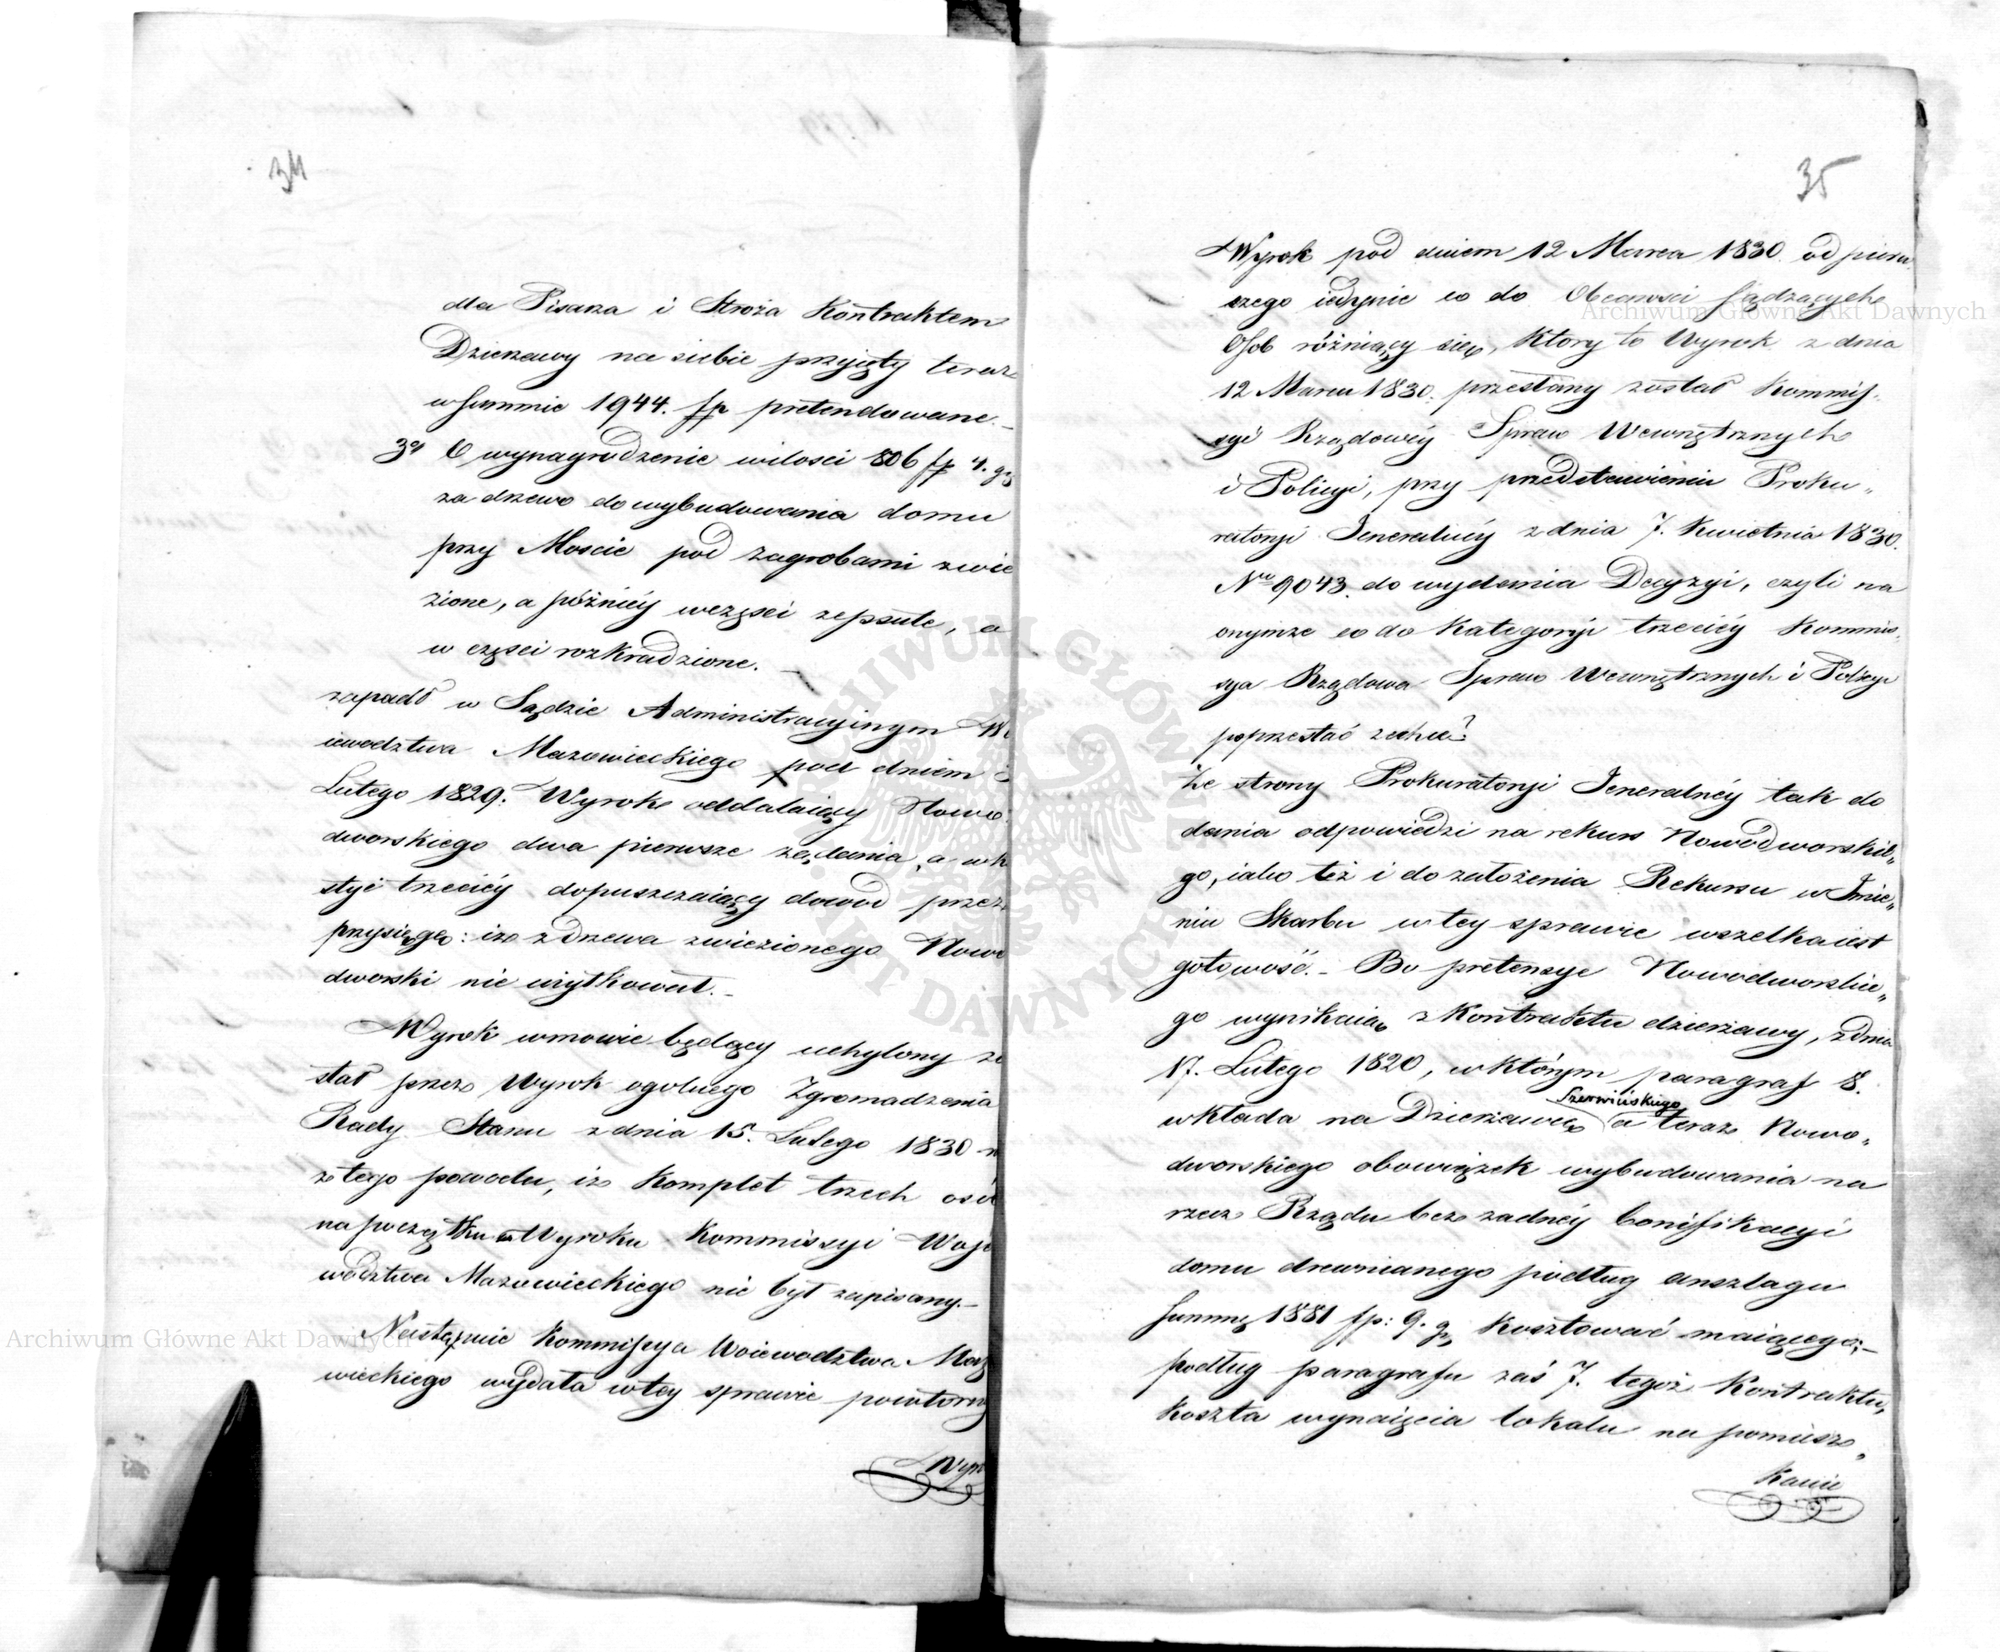 34
dla Pisarza i Stroża Kontraktem
Dzierzawy na siebie przyięty teraz
w summie 1944. fp pretendowane.
3º O wynagrodzenie wilosci 806 fp 4. gr
za drzewo do wybudowania domu
przy Moscie pod Zagrobami zwie
zione, a późniéy wczęsci zepsute, a
w częsci rozkradzione. —
zapadł w Sądzie Administracyinym Wo
iewodztwa Mazowieckiego pod dniem
Lutego 1829. Wyrok oddalaiący Nowo
dworskiego dwa pierwsze żądania, a wk
styi trzeciéy dopuszczaiący dowod przez
przysięgę: iż z drzewa zwiezionego Nowo
dworski nie użytkował. –
Wyrok wmowie będący uchylony zo
stał przez Wyrok ogolnego Zgromadzenia
Rady Stanu z dnia 15. Lutego 1830
z tego powodu, iż Komplet trzech osób
na początku Wyroku Kommissyi Woje
wództwa Mazowieckiego nie był zapisany. –
Następnie Kommissya Woiewodztwa Mazo
wieckiego wydała w tey sprawie powtorny
Wyro
35
Wyrok pod dniem 12 Marca 1830. od pierw
szego iedynie co do Obecnosci sądzących
Osob różniący się, Ktory to Wyrok z dnia
12 Marca 1830. przesłany został Kommis
syi Rządowéy Spraw Wewnętrznych
i Policyi, przy przedstawieniu Proku„
ratoryi Jeneralnéy z dnia 7. Kwietnia 1830.
Nro 9043. do wydania Decyzyi, czyli na
onymże co do Kategoryi trzeciéy Kommis
sya Rządowa Spraw Wewnętrznych i Policyi
poprzestać zechce?
Ze strony Prokuratoryi Jeneralnéy tak do
dania odpowiedzi na rekurs Nowodworskie„
go, iako też i do założenia Rekursu w Imie„
niu Skarbu w tey sprawie wszelka iest
gotowość. – Bo pretensye Nowodworskie„
go wynikaią z Kontraktu dzierżawy, z dnia
17. Lutego 1820, w którym paragraf 8.
wkłada na Dzierżawcę Szerwińskiego a teraz Nowo„
dworskiego obowiązek wybudowania na
rzecz Rządu bez żadnéy bonifikacyi
domu drewnianego podług anszlagu
summę 1881 fp: 9. gr Kosztować maiącego; –
podług paragrafu zaś 7. tegoż Kontraktu,
Koszta wynaięcia lokalu na pomiesz„
Kanie
Archiwum Główne Akt Dawnych
Archiwum Główne Akt Dawnych
ARCHIWUM GŁÓWNE AKT DAWNYCH